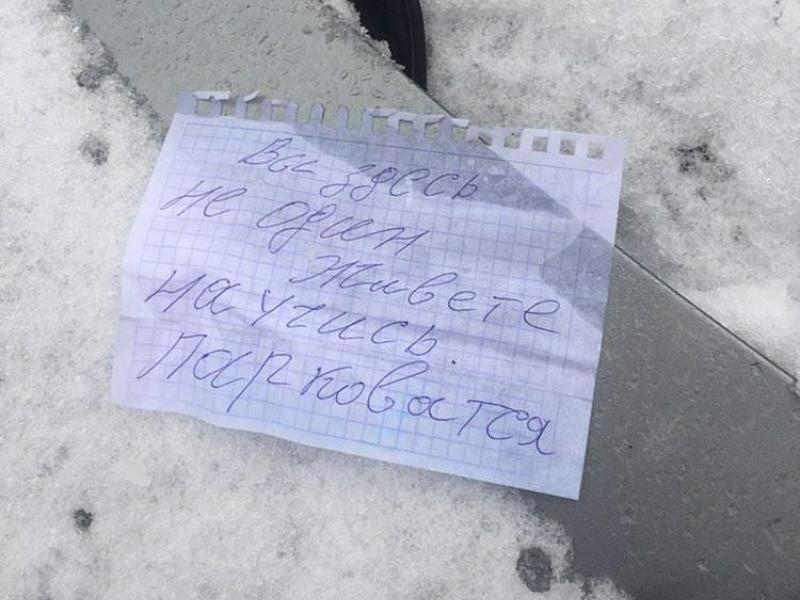 Вы здесь
не один
живете
научись.
парковатся